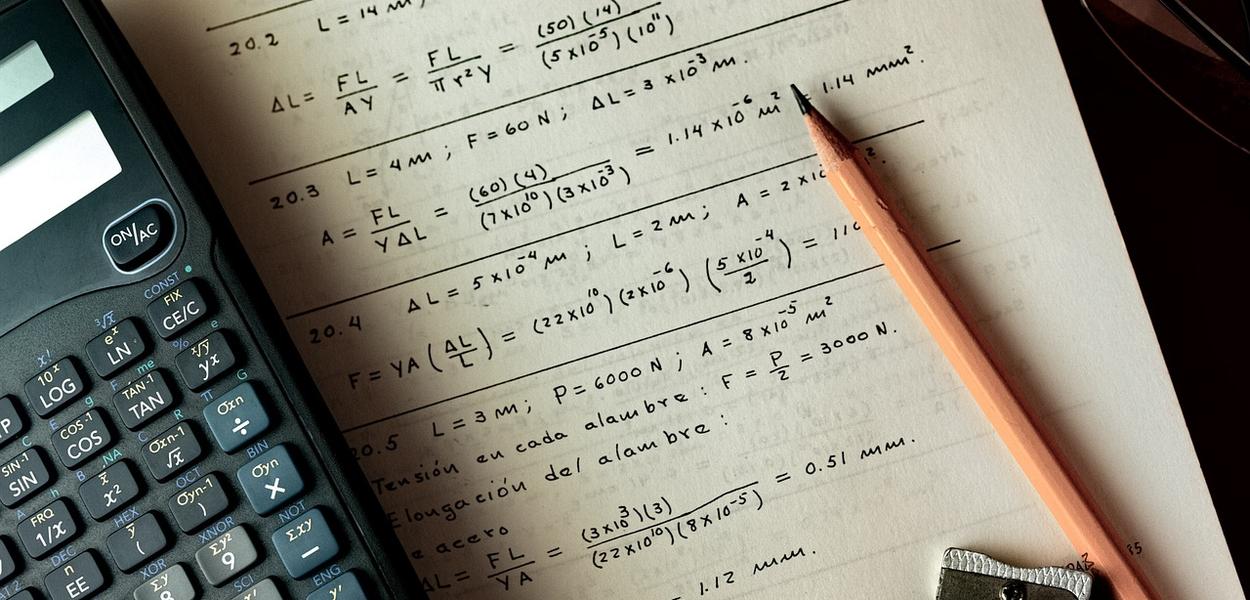 20.2 L = 14 m;
ΔL = FL/AY = FL/πr²Y = (50)(14)/(5×10⁻⁵)(10¹¹)
L = 4 m; F = 60 N; ΔL = 3 ×10⁻³ m.
20.3
A = FL/YΔL = (60)(4)/(7×10¹⁰)(3×10⁻³) = 1.14 ×10⁻⁶ m² = 1.14 mm².
20.4 ΔL = 5 ×10⁻⁴ m; L = 2 m; A = 2 ×10
F = YA (ΔL/L) = (22×10¹⁰)(2×10⁻⁶) (5×10⁻⁴/2) = 110
20.5 L = 3 m; P = 6000 N; A = 8 ×10⁻⁵ m²
Tensión en cada alambre: F = P/2 = 3000 N.
Elongación del alambre:
e acero
ΔL = FL/YA = (3×10³)(3)/(22×10¹⁰)(8×10⁻⁵) = 0.51 mm.
= 1.12 mm.
ON/AC
CONST
FIX
CE/C
³√x e
eˣ
LN
%
ˣ√y
yx
x!
10ˣ
LOG
F me
TAN-1
TAN
π G
σxn
÷
P
C g
COS-1
COS
C R
σxn-1
√x
BIN
σyn
×
SIN-1
SIN
h ,NA
x̄
x²
OCT
σyn-1
)
NOT
Σxy
–
A
FRQ
1/x
b HEX
ȳ
(
XNOR
Σy²
9
ENG
y'
DEC
n
EE
XOR
Σy
8
SCI
x'